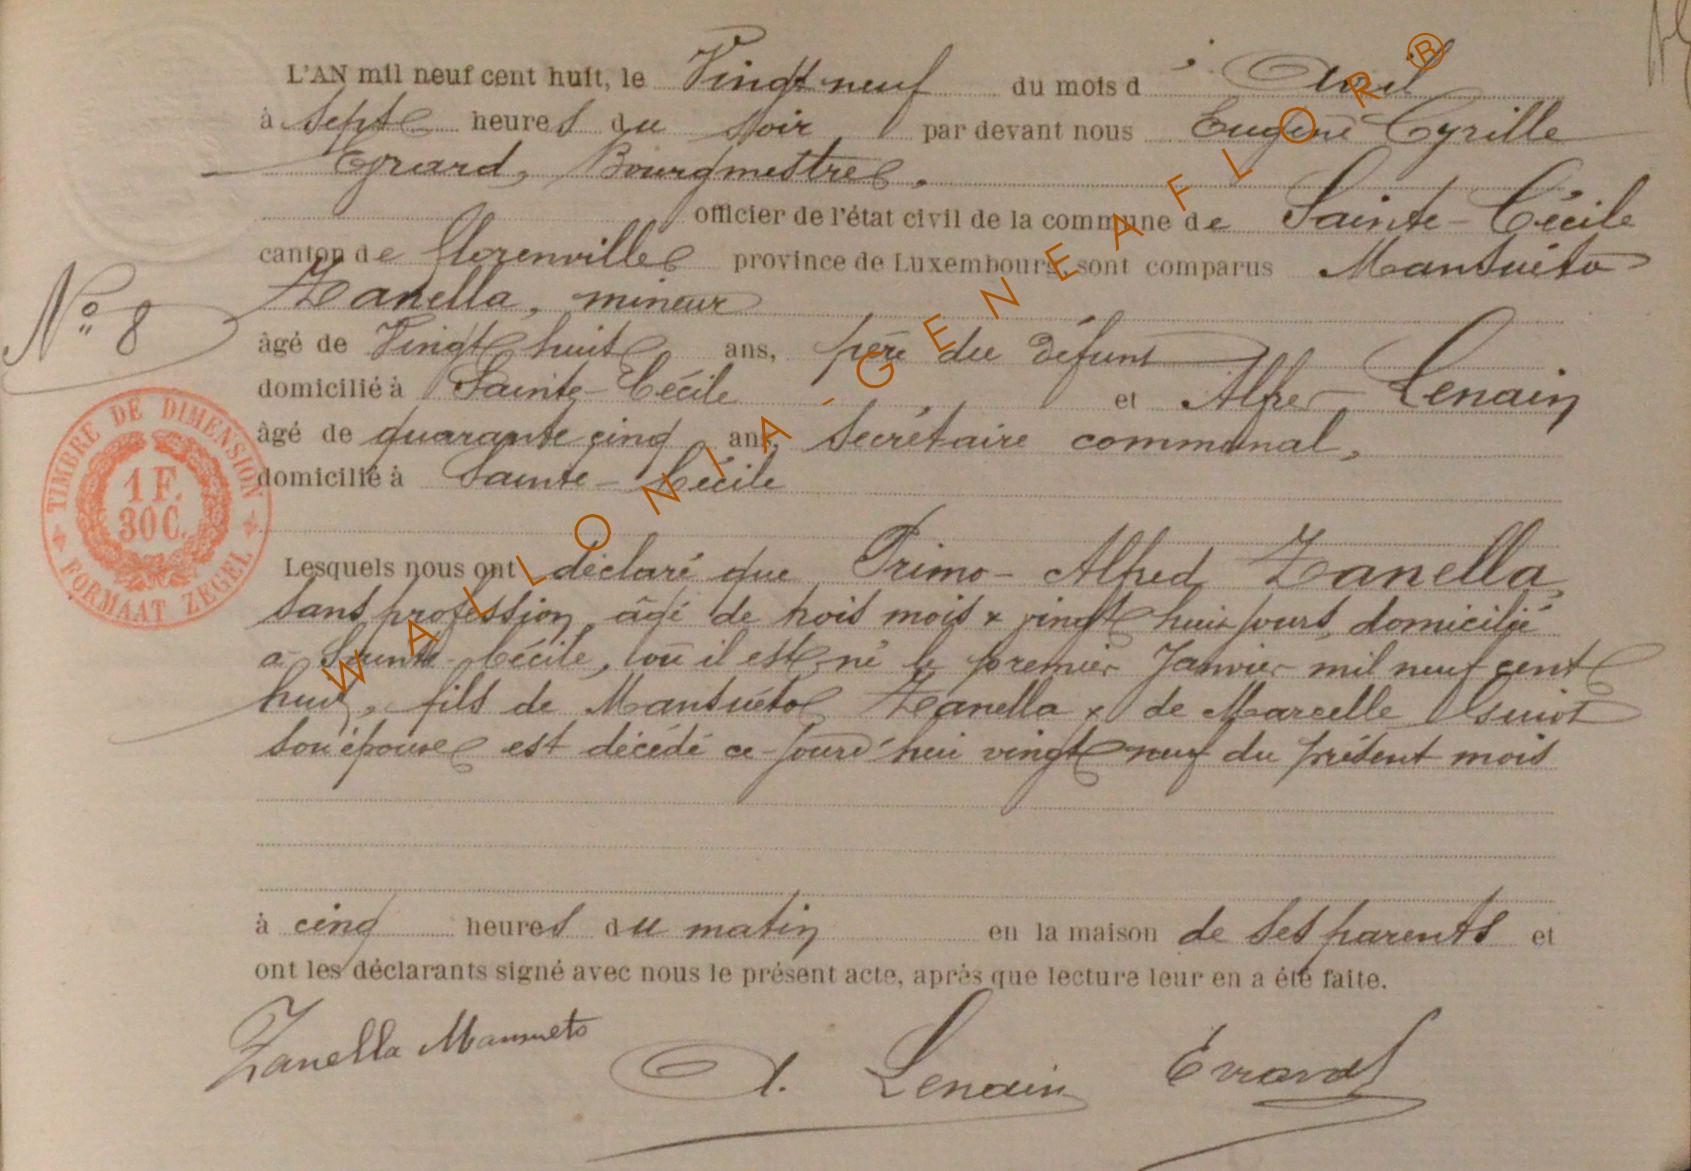 L'AN mil neuf cent huit, le Vingt neuf du mois d'Avril
à sept heures du soir par devant nous Eugène Cyrille
Evrard, Bourgmestre.
officier de l'état civil de la commune de Sainte-Cécile
canton de Florenville province de Luxembourg, sont comparus Mansuéto
Zanella, mineur
No 8
âgé de Vingt huit ans, père du défunt
domicilié à Sainte-Cécile et Alfred Lenain
âgé de quarante cinq ans, secrétaire communal,
domicilié à Sainte-Cécile
TIMBRE DE DIMENSION
1 F.
30 C.
FORMAAT ZEGEL
Lesquels nous ont déclaré que Primo-Alfred Zanella,
sans profession, âgé de trois mois & vingt huit jours, domicilié
à Sainte-Cécile, où il est né le premier Janvier mil neuf cent
huit, fils de Mansuéto Zanella & de Marcelle
son épouse est décédé ce jourd'hui vingt neuf du présent mois
à cinq heures du matin en la maison de ses parents et
ont les déclarants signé avec nous le présent acte, après que lecture leur en a été faite.
Zanella Mansueto
A. Lenain
Evrard
WALLONIA-GENEAFLOR®